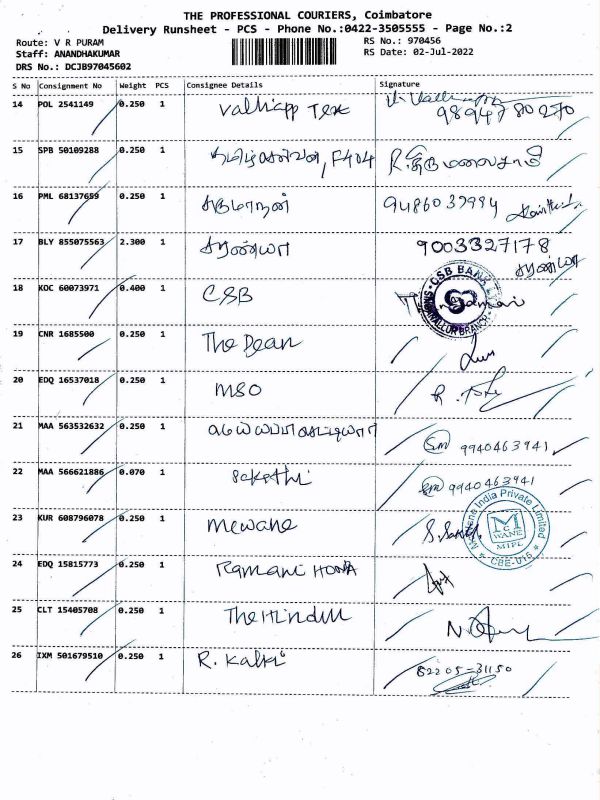 THE PROFESSIONAL COURIERS, Coimbatore
Delivery Runsheet - PCS - Phone No.:0422-3505555 - Page No.:2
Route: V R PURAM
RS No.: 970456
Staff: ANANDHAKUMAR
RS Date: 02-Jul-2022
DRS No.: DCJB97045602
S No Consignment No Weight PCS Consignee Details Signature
14 POL 2541149 0.250 1 Valliapp Tex
98947 80270
15 SPB 50109288 0.250 1 தமிழ்செல்வன், F404 R.திருமலைசாமி
16 PML 68137659 0.250 1 9486039994
17 BLY 855075563 2.300 1 சரண்யா 9003327178
சரண்யா
18 KOC 60073971 0.400 1 CSB
CSB BANK
BRANCH
19 CNR 1685500 0.250 1 The Dean
20 EDQ 16537018 0.250 1 MSO
21 MAA 563532632 0.250 1 SM 9940463941
22 MAA 566621886 0.070 1 Sakethi SM 9940463941
23 KUR 608796078 0.250 1 Mcwane
McWane India Private Limited
M C WANE
MIPL
CBE-015
24 EDQ 15815773 0.250 1 Ramani Honda
25 CLT 15405708 0.250 1 The Hindu
26 IXM 501679510 0.250 1 R. Kalki 82205-31150